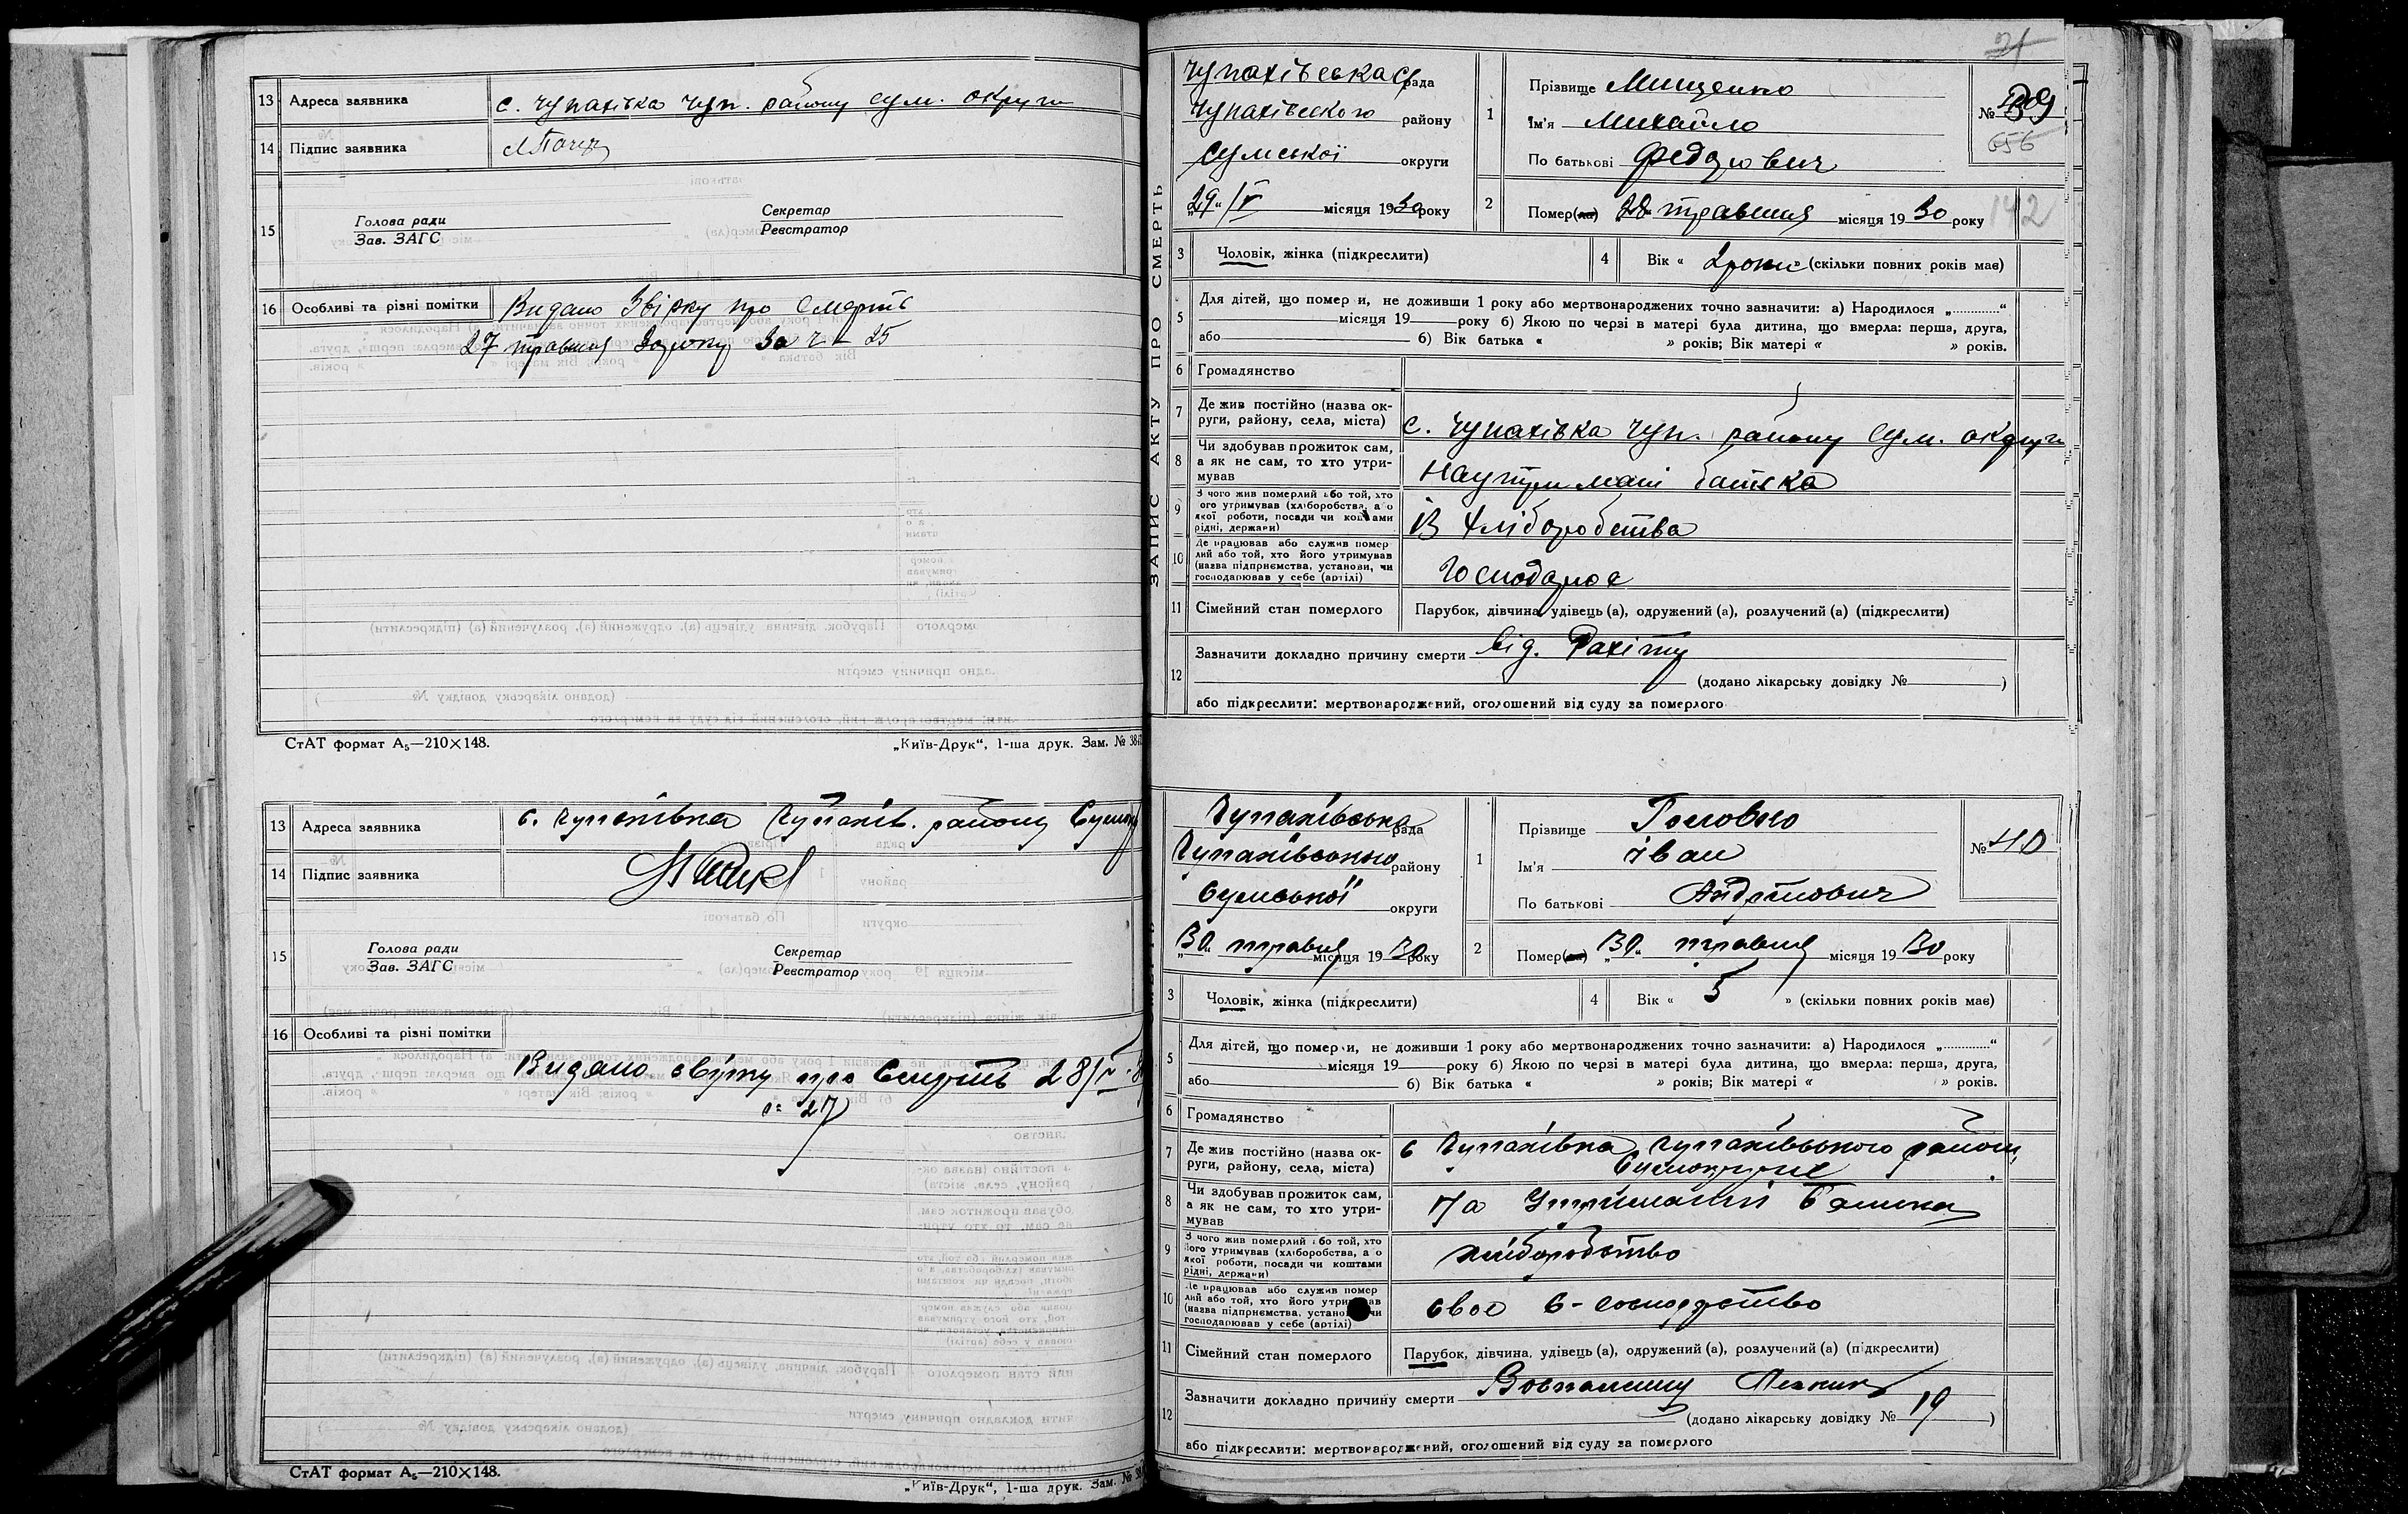 13 Адреса заявника с. Чупахівка Чуп. району Сум. округи
14 Підпис заявника
15 Голова ради Секретар
Зав. ЗАГС Реєстратор
16 Особливі та різні помітки Видано Звірку про Смерть
27 травня 30 року За ч - 25
СтАТ формат А₅—210×148. „Київ-Друк“, 1-ша друк. Зам. № 38
13 Адреса заявника с. Чупахівка Чупахів. району Сумок
14 Підпис заявника
15 Голова ради Секретар
Зав. ЗАГС Реєстратор
16 Особливі та різні помітки
Видано звірку про Смерть 28/V
27
СтАТ формат А₅—210×148.
„Київ-Друк“, 1-ша друк. Зам. №
ЗАПИС АКТУ ПРО СМЕРТЬ
21
Чупахівська С/рада
Чупахівського району
Сумської округи
„29“ /V місяця 1930 року
1 Прізвище Мищенко
Ім'я Михайло
По батькові Федорович
№ 39
656
2 Помер(ла) 28 травня місяця 1930 року
142
3 Чоловік, жінка (підкреслити)
4 Вік « 2 роки » (скільки повних років має)
5 Для дітей, що померли, не доживши 1 року або мертвонароджених точно зазначити: а) Народилося „.............“
місяця 19 року б) Якою по черзі в матері була дитина, що вмерла: перша, друга,
або б) Вік батька « » років; Вік матері « » років.
6 Громадянство
7 Де жив постійно (назва округи, району, села, міста) с. Чупахівка Чуп. району Сум. округи
8 Чи здобував прожиток сам, а як не сам, то хто утримував На утримані батька
9 З чого жив померлий або той, хто ого утримував (хліборобства, а о якої роботи, посади чи коштами рідні, держави) Із Хліборобства
10 Де працював або служив помер лий або той, хто його утримував (назва підприємства, установи, чи господарював у себе (артілі) Господарює
11 Сімейний стан померлого Парубок, дівчина, удівець (а), одружений (а), розлучений (а) (підкреслити)
12 Зазначити докладно причину смерти від. Рахіту
(додано лікарську довідку № )
або підкреслити: мертвонароджений, оголошений від суду за померлого
Чупахівська рада
Чупахівського району
Сумської округи
„30“ травня місяця 1930 року
1 Прізвище Головко
Ім'я Іван
По батькові Андрійович
№ 40
2 Помер(ла) „30“ травня місяця 1930 року
3 Чоловік, жінка (підкреслити)
4 Вік « 5 » (скільки повних років має)
5 Для дітей, що померли, не доживши 1 року або мертвонароджених точно зазначити: а) Народилося „.............“
місяця 19 року б) Якою по черзі в матері була дитина, що вмерла: перша, друга,
або б) Вік батька « » років; Вік матері « » років.
6 Громадянство
7 Де жив постійно (назва округи, району, села, міста) с Чупахівка Чупахівського району
Сумокруги
8 Чи здобував прожиток сам, а як не сам, то хто утримував На Утриманні Батька
9 З чого жив померлий або той, хто його утримував (хліборобства, а о якої роботи, посади чи коштами рідні, держави) хліборобство
10 Де працював або служив помер лий або той, хто його утримував (назва підприємства, установи, чи господарював у себе (артілі) своє с-господрство
11 Сімейний стан померлого Парубок, дівчина, удівець (а), одружений (а), розлучений (а) (підкреслити)
12 Зазначити докладно причину смерти Воспалению Легких
(додано лікарську довідку № 19 )
або підкреслити: мертвонароджений, оголошений від суду за померлого